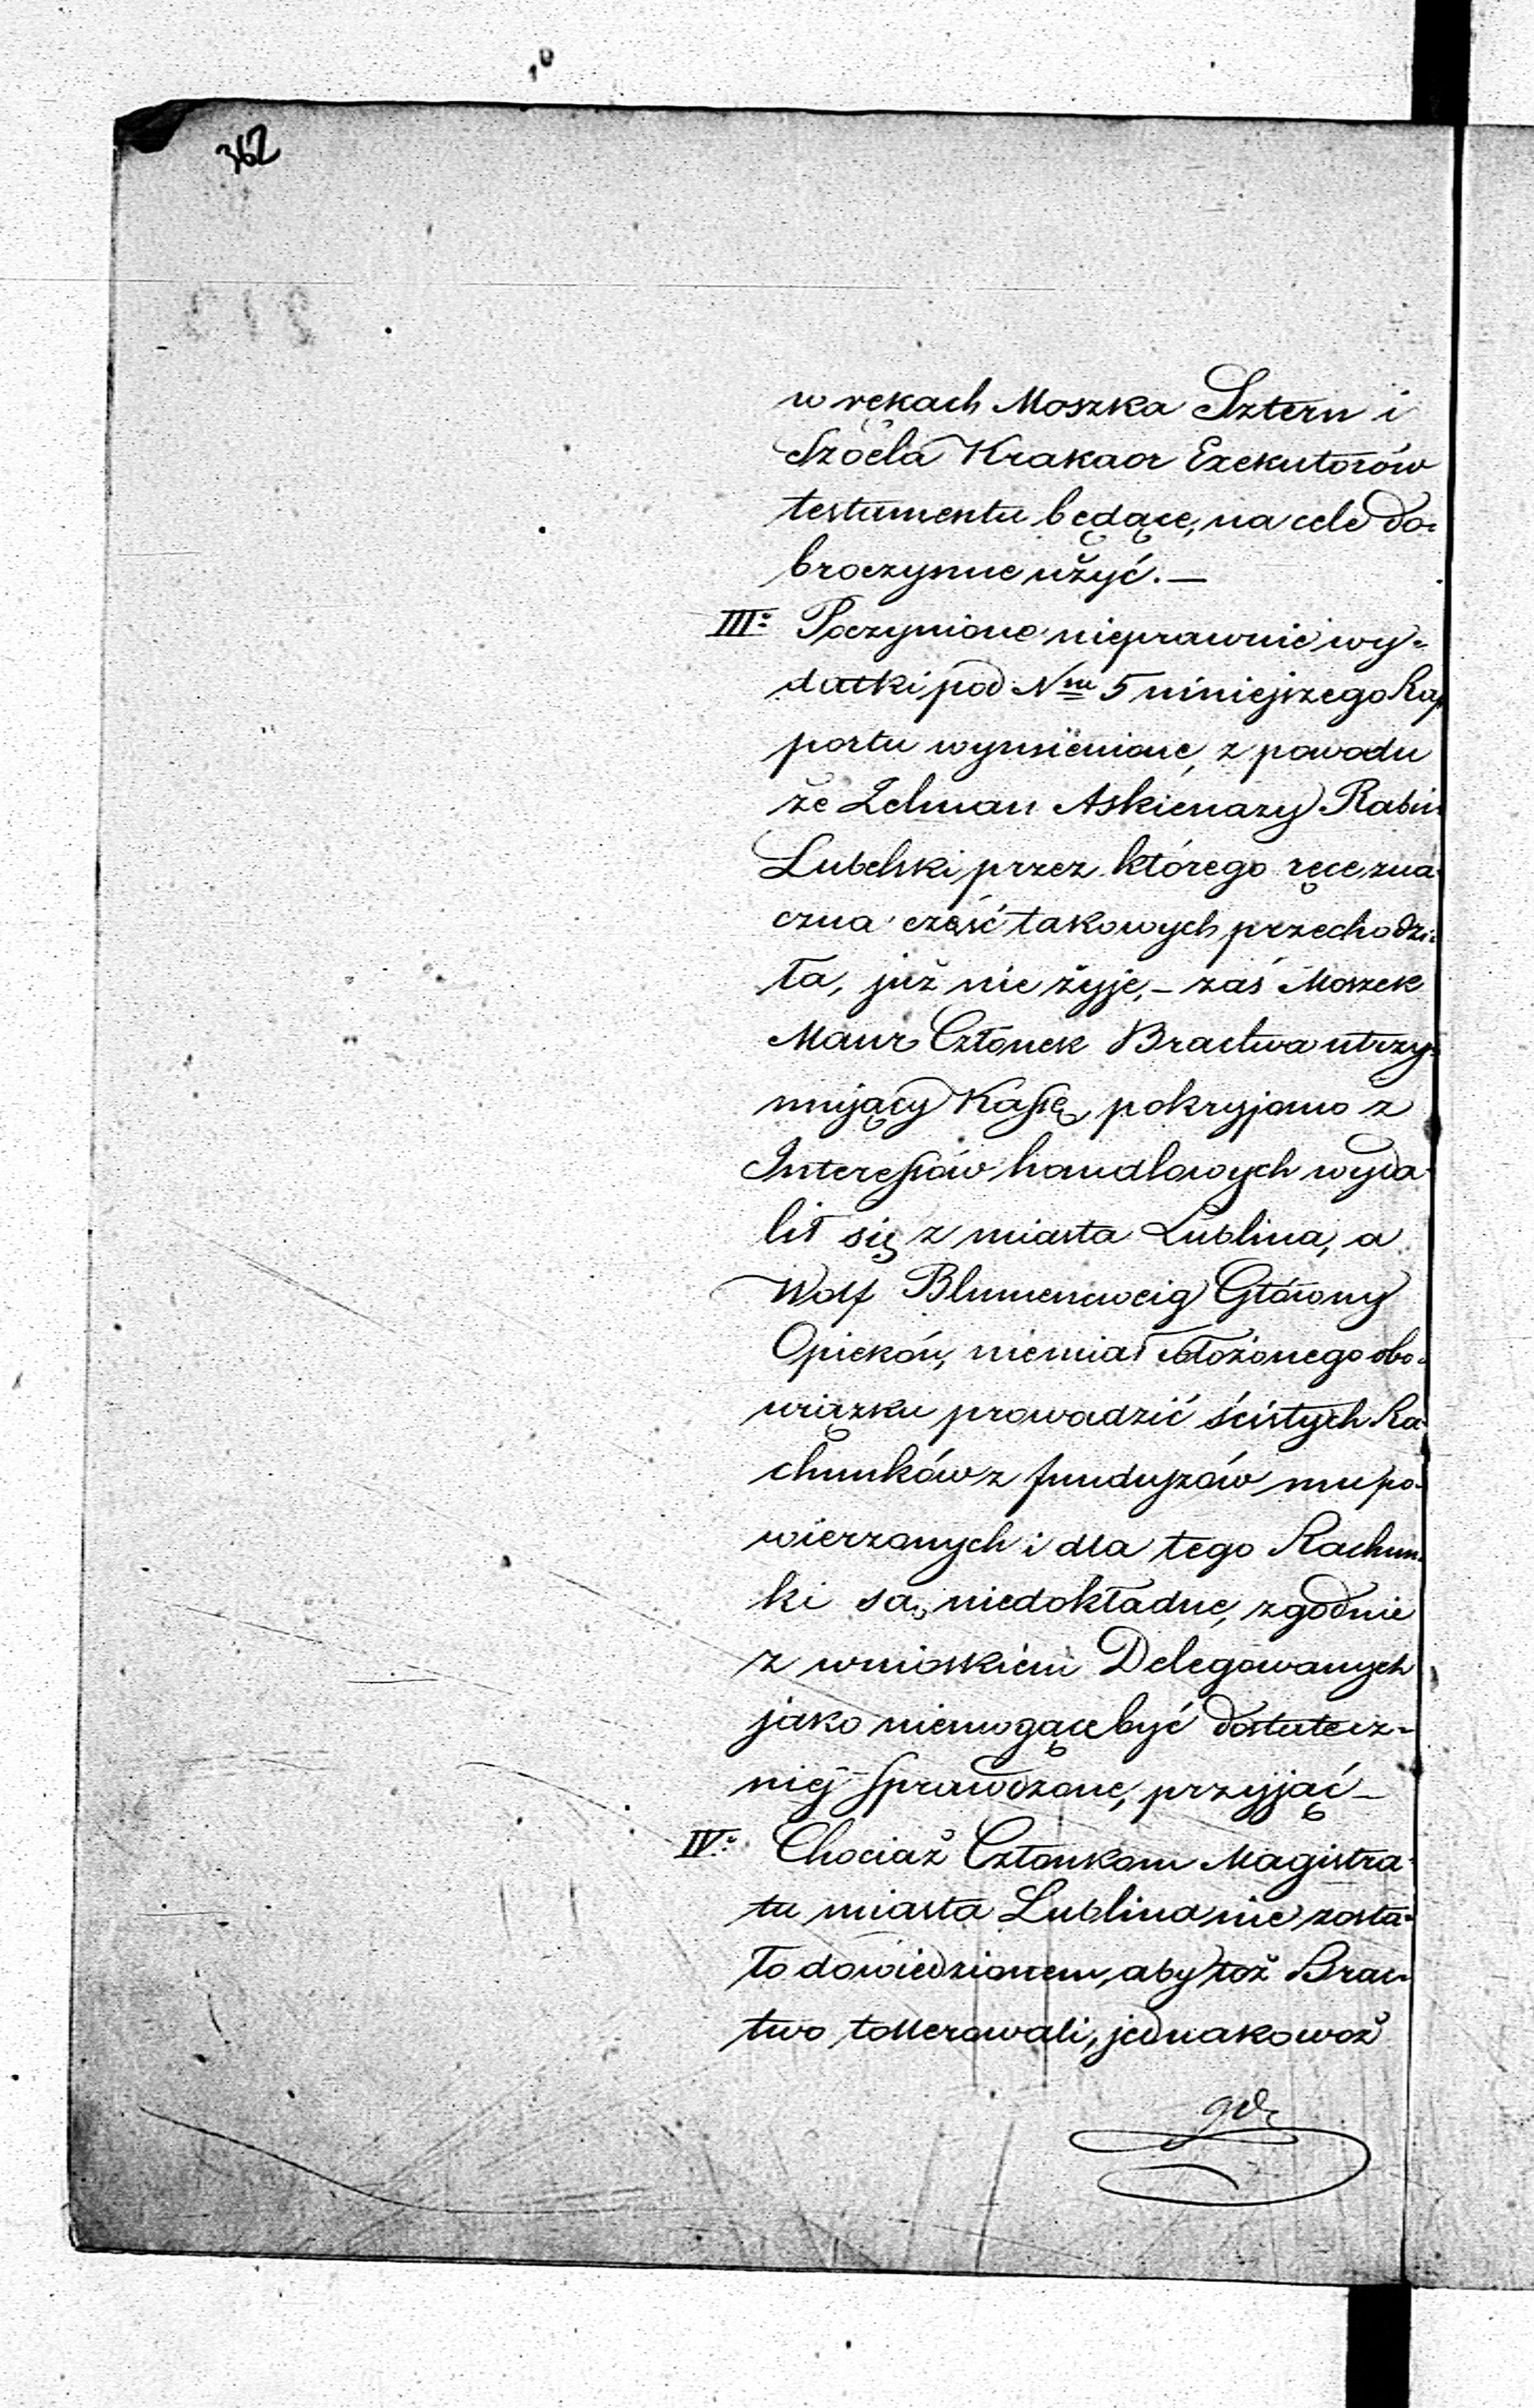 362
w rękach Moszka Sztern i
Szoela Krakaor Exekutorów
testamentu będące, na cele do-
broczynne użyć. —
III: Poczynione nieprawnie wy-
datki pod Nm 5 niniejszego Rap
portu wymienione, z powodu
że Zelman Askienazy Rabin
Lubelski przez którego ręce zna-
czna część takowych przechodzi-
ła, już nie żyje, – zaś Moszek
Maur Członek Bractwa utrzy-
mujący Kassę, pokryjomo z
Interessów handlowych wyda-
lił się z miasta Lublina, a
Wolf Blumencweig Główny
Opiekón, niemiał włożonego obo-
wiązku prowadzić ścisłych Ra-
chunków z funduszów mu po-
wierzonych i dla tego Rachun-
ki są niedokładne, zgodnie
z wnioskiem Delegowanych
jako niemogące być dostatecz-
niej sprawdzone, przyjąć —
IV: Chociaż Członkom Magistra-
tu miasta Lublina nie zosta-
ło dowiedzionem, aby toż Brac-
two tollerowali, jednakowoż
gdy